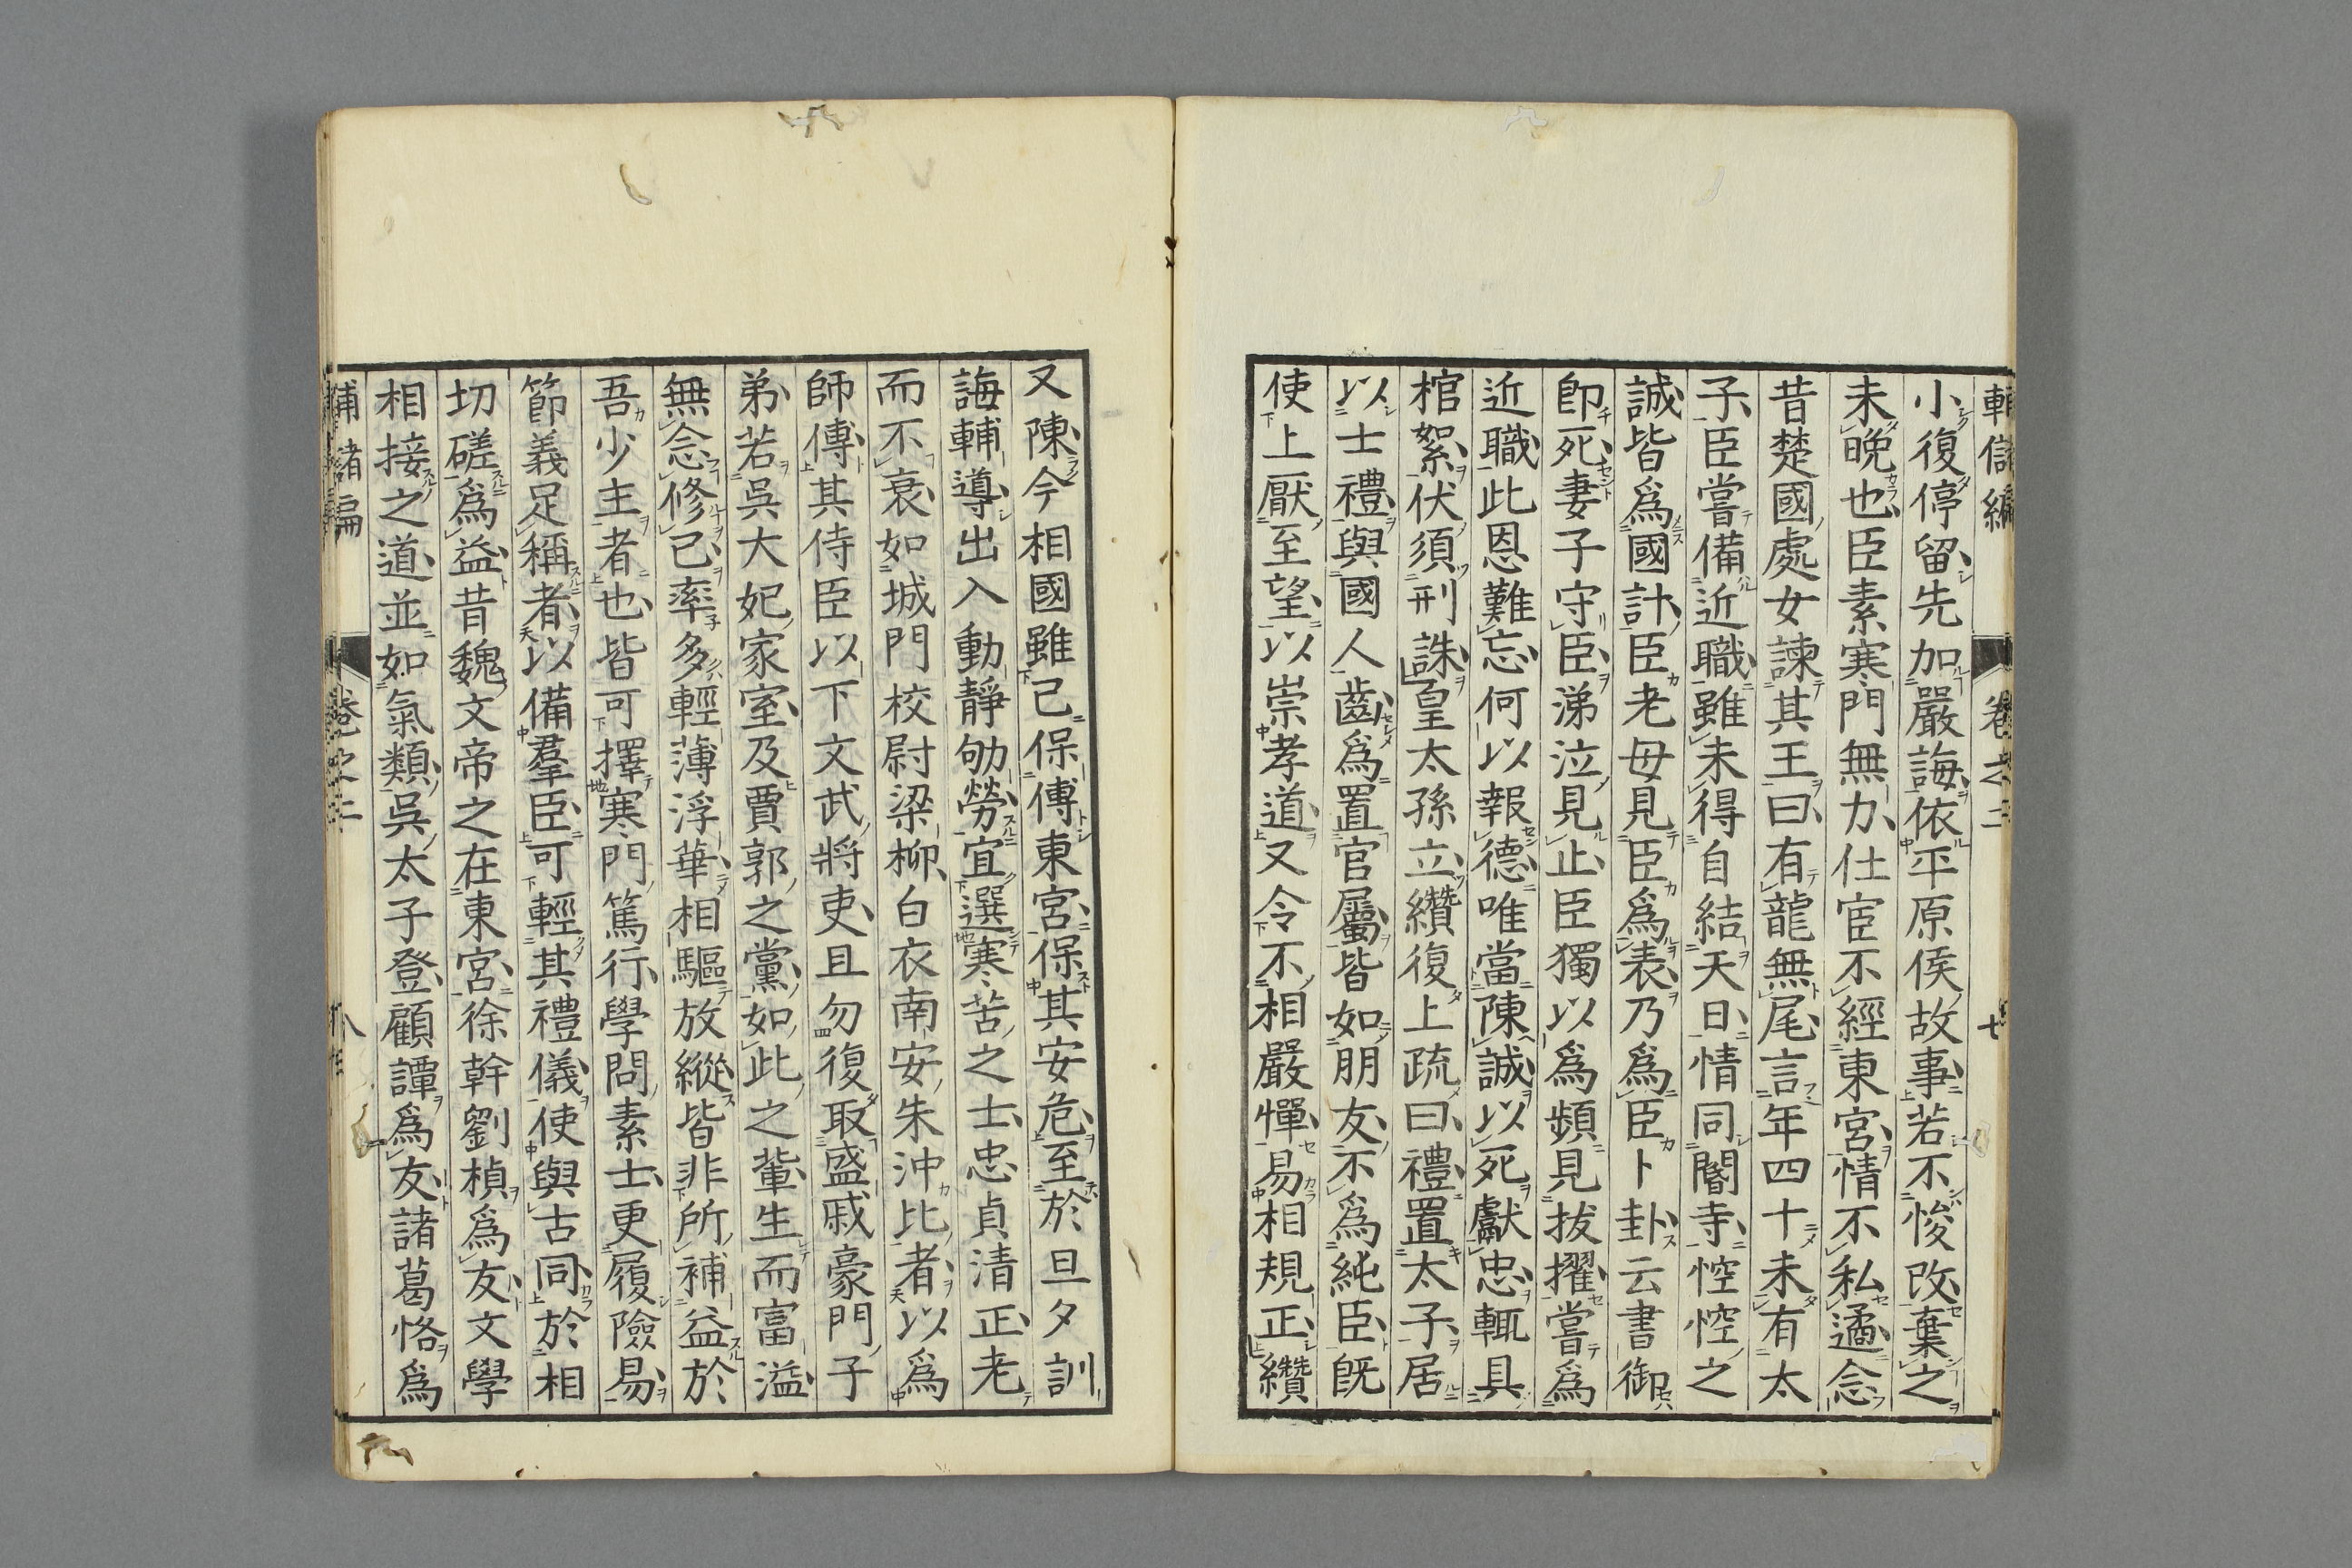 輔儲編 卷之二 七
小復停留先加嚴誨依平原侯故事若不悛改棄之
未晚也臣素寒門無力仕宦不經東宮情不私遹念
昔楚國處女諫其王曰有龍無尾言年四十未有太
子臣嘗備近職雖未得自結天日情同閽寺悾悾之
誠皆爲國計臣老母見臣爲表乃爲臣卜卦云書御
卽死妻子守臣涕泣見止臣獨以爲頻見拔擢嘗爲
近職此恩難忘何以報德唯當陳誠以死獻忠輒具
棺絮伏須刑誅皇太孫立纘復上疏曰禮置太子居
以士禮與國人齒爲置官屬皆如朋友不爲純臣旣
使上厭至望以崇孝道又令不相嚴憚易相規正纘
又陳今相國雖已保傅東宮保其安危至於旦夕訓
誨輔導出入動靜劬勞宜選寒苦之士忠貞清正老
而不衰如城門校尉梁柳白衣南安朱沖比者以爲
師傅其侍臣以下文武將吏且勿復取盛戚豪門子
弟若吳大妃家室及賈郭之黨如此之輩生而富溢
無念修己率多輕薄浮華相驅放縱皆非所補益於
吾少主者也皆可擇寒門篤行學問素士更履險易
節義足稱者以備羣臣可輕其禮儀使與古同於相
切磋爲益昔魏文帝之在東宮徐幹劉楨爲友文學
相接之道並如氣類吳太子登顧譚爲友諸葛恪爲
輔諸編 卷之二 八